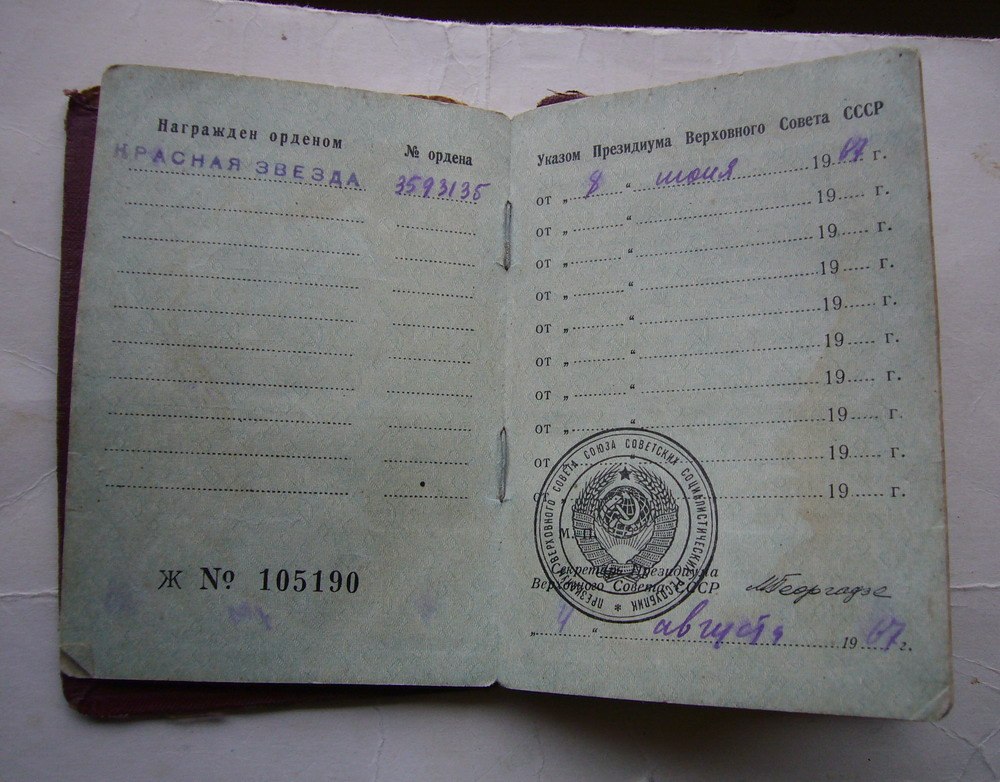 Награжден орденом № ордена
КРАСНАЯ ЗВЕЗДА 3593135
Ж № 105190
Указом Президиума Верховного Совета СССР
от „ 8 “ июня 1967 г.
от „ “ 19 г.
от „ “ 19 г.
от „ “ 19 г.
от „ “ 19 г.
от „ “ 19 г.
от „ “ 19 г.
от „ “ 19 г.
от „ “ 19 г.
от „ “ 19 г.
М. П.
ПРЕЗИДИУМ ВЕРХОВНОГО СОВЕТА СОЮЗА СОВЕТСКИХ СОЦИАЛИСТИЧЕСКИХ РЕСПУБЛИК
Секретарь Президиума
Верховного Совета СССР МГеоргадзе
„ 4 “ августа 1967 г.